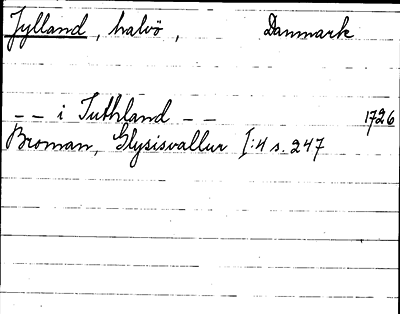 Jylland, halvö, Danmark
-- i Tuthland -- 1726
Broman, Glysisvallur I:4 s. 247